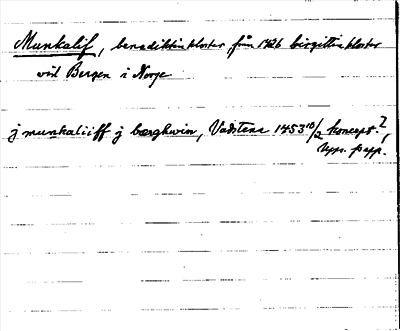 Munkalif, benediktinkloster från 1426 birgittinkloster
vid Bergen i Norge
j munkaliiff j bærghwin, Vadstena 1453 10/2 koncept?,
Upps. papp.